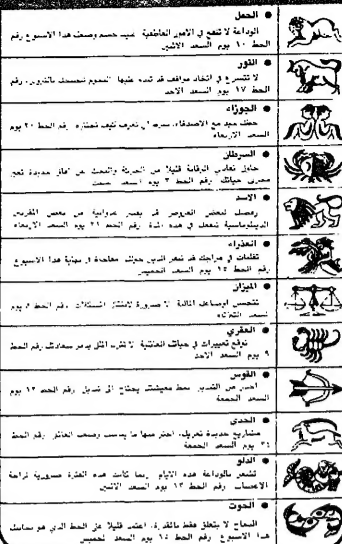 الحمل
الوداعة لا تنفع في الامور العاطفية حسم وصف هذا الاسبوع رقم
الحظ ١٠ يوم السعد الاثنين
الثور
لا تتسرع في اتخاذ مواقف قد تندم عليها رقم
الحظ ١٧ يوم السعد الاحد
الجوزاء
حظك جيد مع الاصدقاء تعرف كيف تختاره رقم الحظ ٢٠ يوم
السعد الاربعاء
السرطان
حاول تفادي قليلا من والبحث عن آفاق جديدة تغير
مجرى حياتك رقم الحظ ٣ يوم السعد
الاسد
لبعض العروض قد يفسر من بعض المقربين
الدبلوماسية تنفعك في هذه المدة رقم الحظ ٢١ يوم السعد الاربعاء
العذراء
تقلبات في مزاجك قد تشعر الذين حولك في نهاية هذا الاسبوع
رقم الحظ ١٥ يوم السعد الخميس
الميزان
تتحسن اوضاعك المالية لا ضرورة المشكلات رقم الحظ ٨ يوم
السعد الثلاثاء
العقرب
توقع تغييرات في حياتك العائلية لا تترك يدمر سعادتك رقم الحظ
٩ يوم السعد الاحد
القوس
احترس من نمط معيشتك يحتاج الى تعديل رقم الحظ ١٢ يوم
السعد الجمعة
الجدي
مشاريع جديدة اختر منها ما يناسب وضعك رقم الحظ
٢٤ يوم السعد الجمعة
الدلو
تشعر بالوداعة هذه الايام ربما كانت هذه الفترة ضرورية لراحة
الاعصاب رقم الحظ ١٣ يوم السعد الاثنين
الحوت
النجاح لا يتعلق فقط بالقدرة، اعتمد قليلا على الحظ الذي هو بجانبك
هذا الاسبوع رقم الحظ ١٤ يوم السعد الخميس